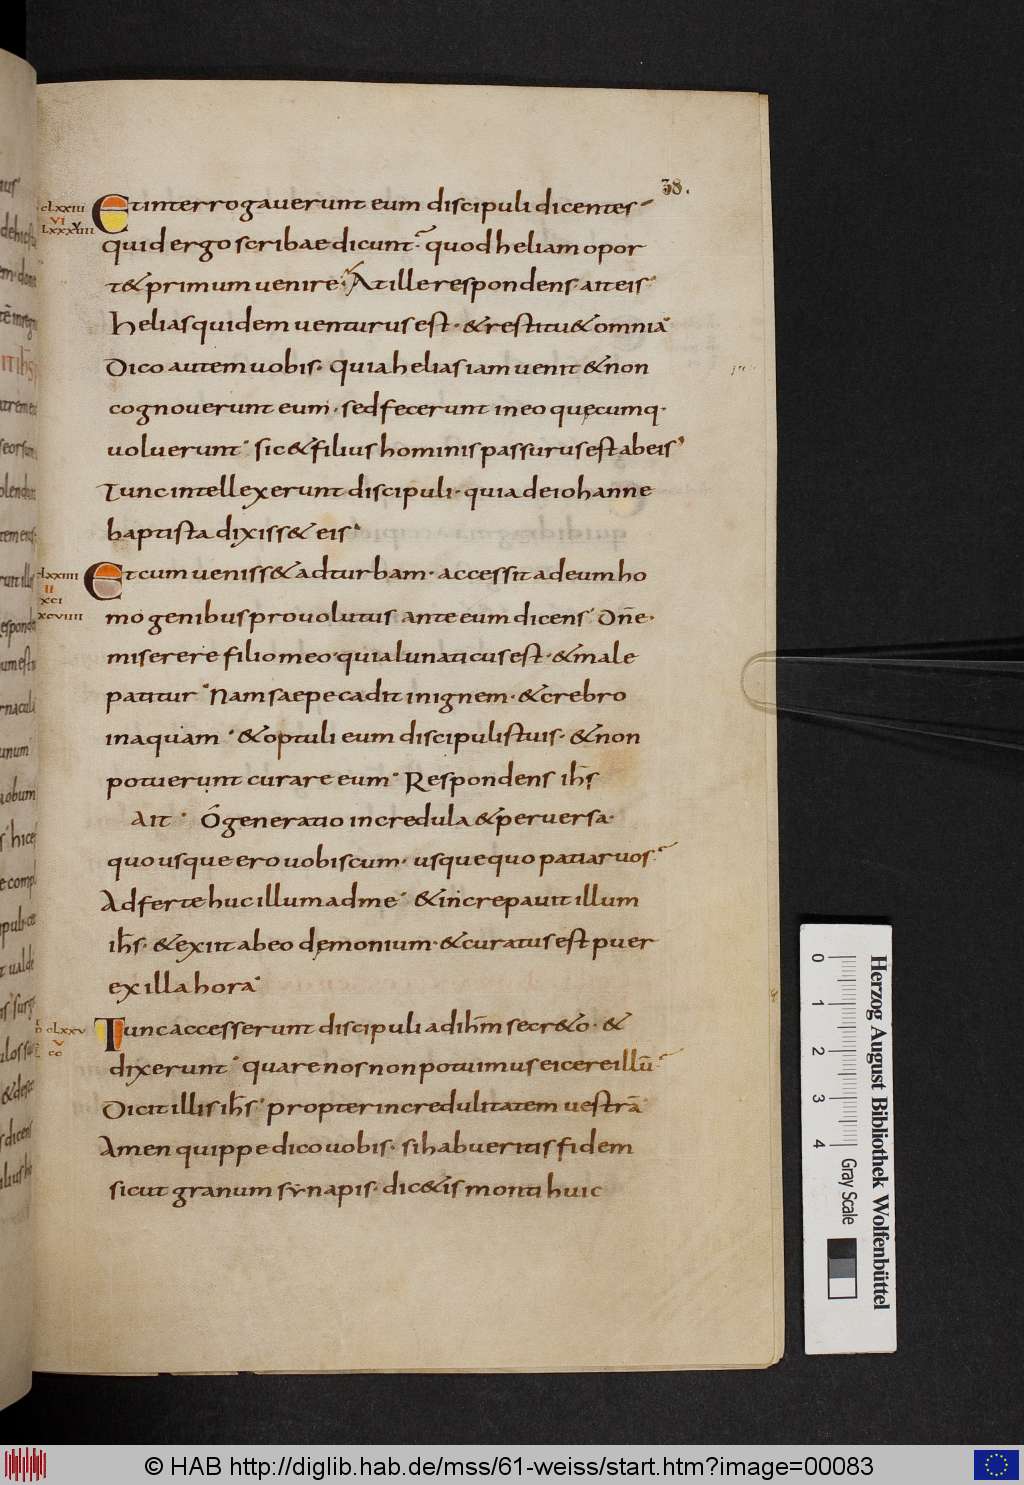 38.
clxxiii
vi
lxxxviiii
Et interrogaverunt eum discipuli dicentes
quid ergo scribae dicunt· quod heliam opor
t& primum venire· At ille respondens· ait eis
helias quidem venturus est· & restitu& omnia
Dico autem vobis· quia helias iam venit & non
cognoverunt eum· sed fecerunt in eo quęcumq·
voluerunt· sic & filius hominis passurus est ab eis
Tunc intellexerunt discipuli· quia de iohanne
baptista dixiss& eis
clxxiiii
ii
xci
xcviiii
Et cum veniss& ad turbam· accessit ad eum ho
mo genibus provolutus ante eum dicens· dñe·
miserere filio meo· quia lunaticus est· & male
patitur· Nam saepe cadit in ignem· & crebro
in aquam· & optuli eum discipulis tuis· & non
potuerunt curare eum· Respondens ih̅s
ait· O generatio incredula & perversa·
quo usque ero vobiscum· usquequo patiar vos
Adferte huc illum ad me· & increpavit illum
ih̅s· & exiit ab eo dęmonium· & curatus est puer
ex illa hora·
clxxv
v
co
Tunc accesserunt discipuli ad ih̅m secr&o· &
dixerunt· quare nos non potuimus eicere illū
Dicit illis ih̅s· propter incredulitatem vestrā
Amen quippe dico vobis· si habueritis fidem
sicut granum synapis· dic&is monti huic
0 1 2 3 4
Gray Scale
Herzog August Bibliothek Wolfenbüttel
© HAB http://diglib.hab.de/mss/61-weiss/start.htm?image=00083